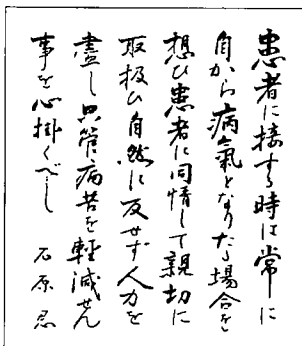 患者に接する時は常に
自から病氣となりたる場合を
想ひ患者に同情して親切に
取扱ひ自然に反せず人力を
盡し只管病苦を軽減せん
事を心掛くべし 石原忍